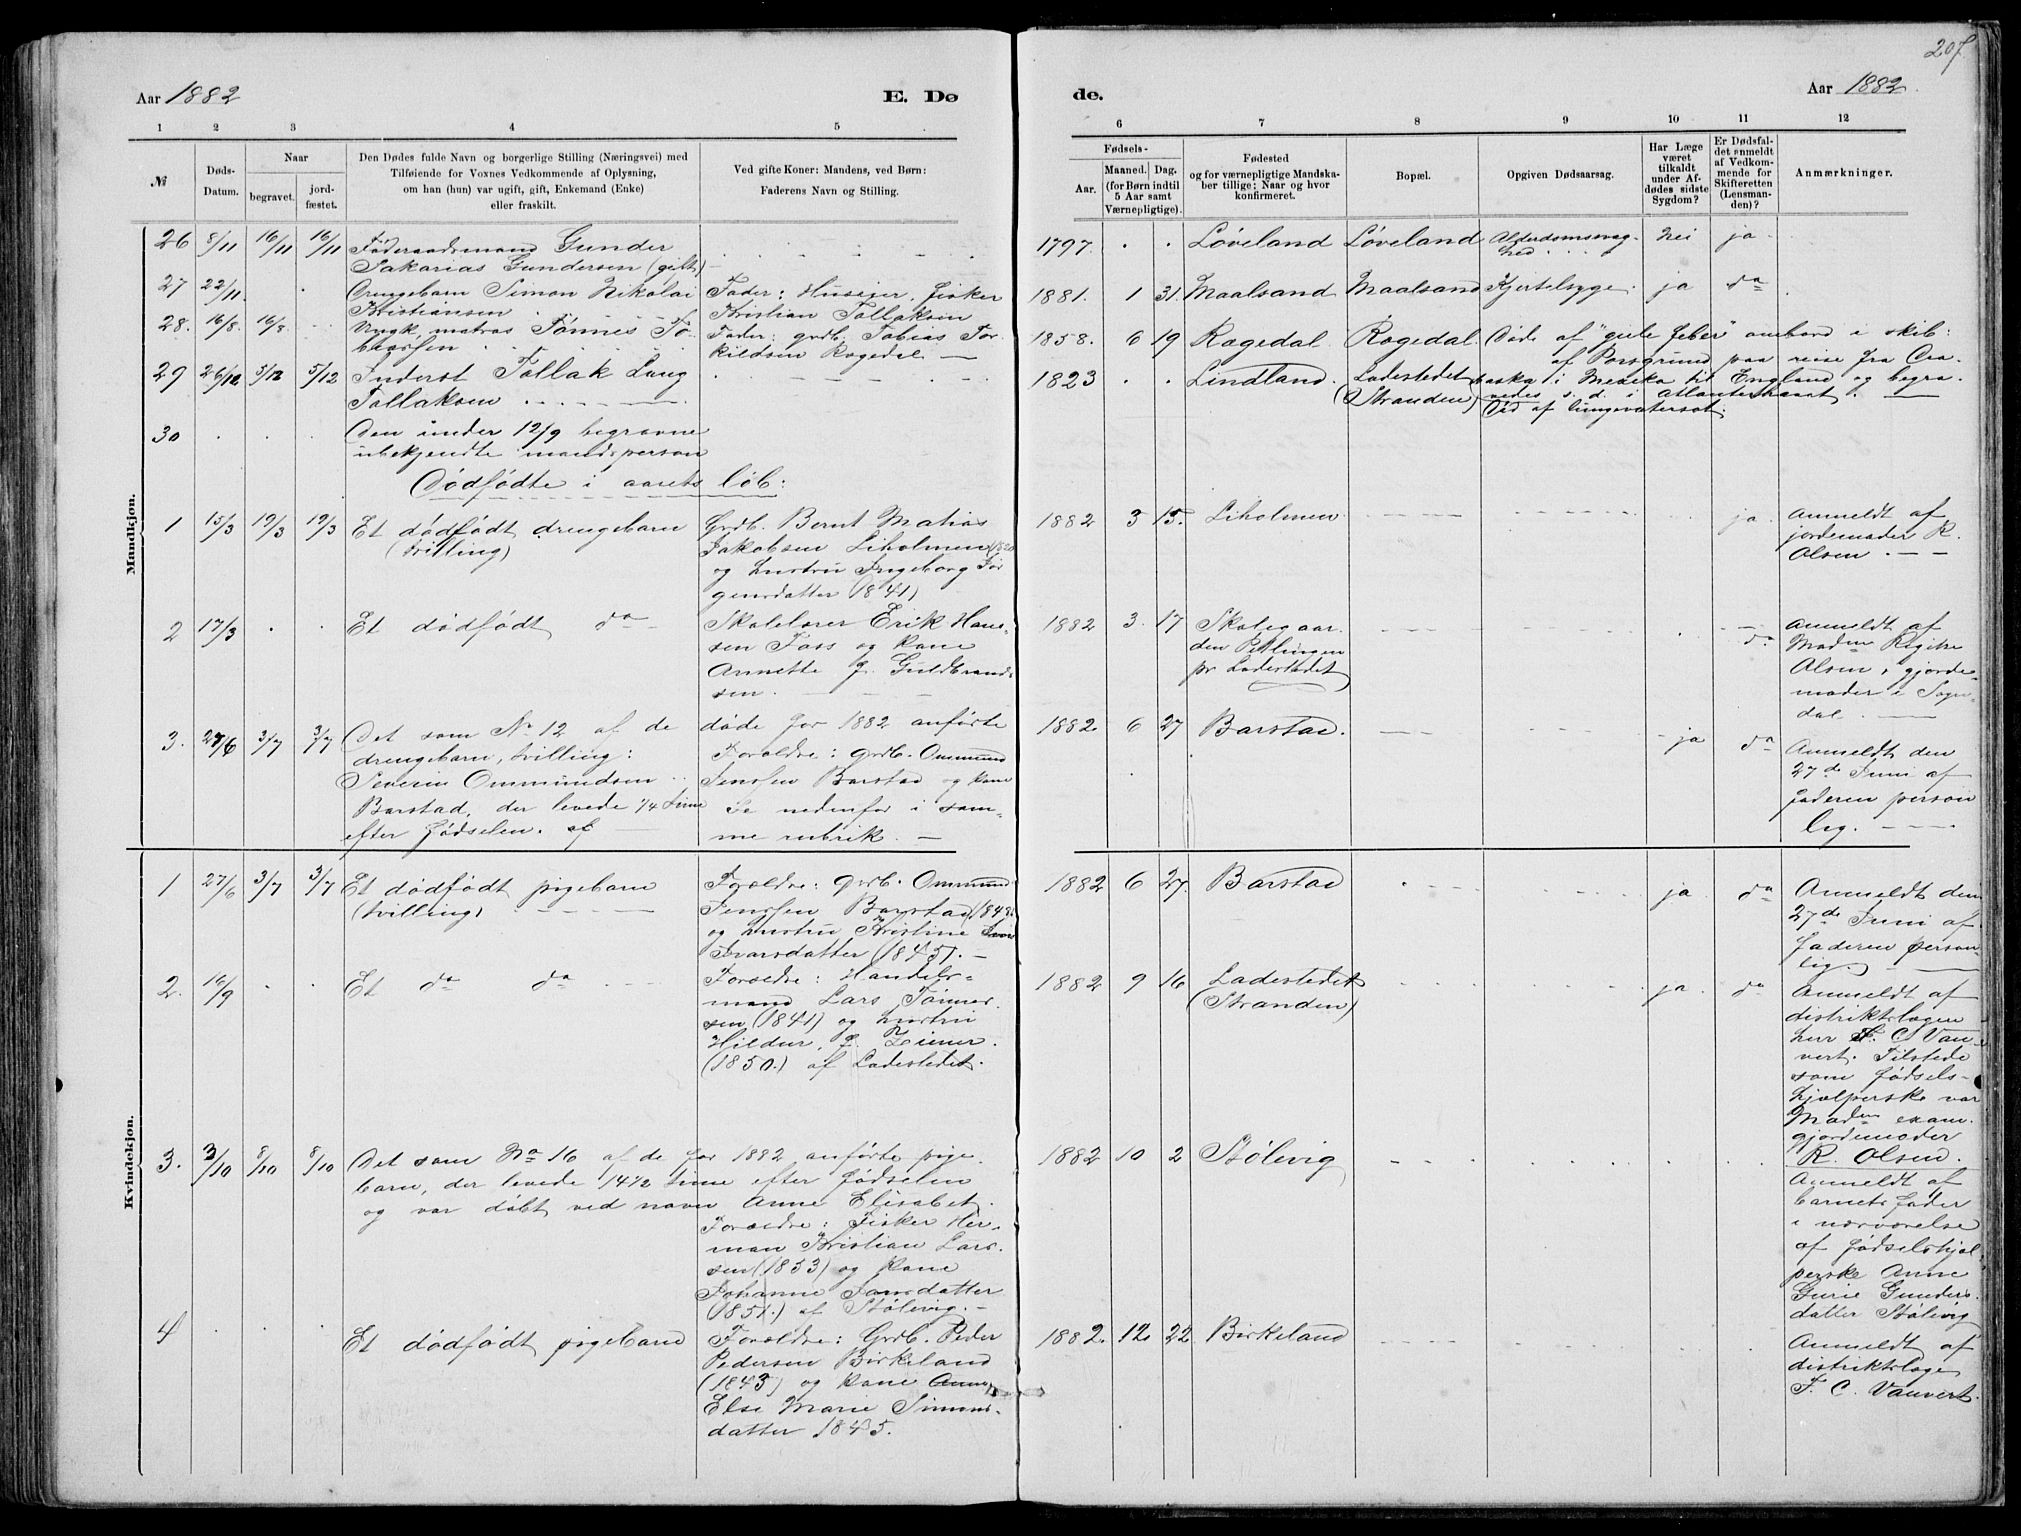 207
Aar 1882
E. Dø
de.
Aar 1882
1 2 3 4 5 6 7 8 9 10 11 12
№
Døds-
Datum.
Naar
begravet.
jord-
fæstet.
Den Dødes fulde Navn og borgerlige Stilling (Næringsvei) med
Tilføiende for Voxnes Vedkommende af Oplysning,
om han (hun) var ugift, gift, Enkemand (Enke)
eller fraskilt.
Ved gifte Koner: Mandens, ved Børn:
Faderens Navn og Stilling.
Fødsels-
Aar.
Maaned. Dag.
(for Børn indtil
5 Aar samt
Værnepligtige).
Fødested
og for værnepligtige Mandska-
ber tillige: Naar og hvor
konfirmeret.
Bopæl.
Opgiven Dødsaarsag.
Har Læge
været
tilkaldt
under Af-
dødes sidste
Sygdom?
Er Dødsfal-
det anmeldt
af Vedkom-
mende for
Skifteretten
(Lensman-
den)?
Anmærkninger.
Mandkjøn.
26 8/11 16/11 16/11 Føderaadsmand Gunder
Sakarias Gundersen (gift)
1797. Løveland Løveland Alderdomssvag-
hed nei ja
27 22/11 Drengebarn Simon Nikolai
Kristiansen
Fader: Huseier, fisker
Kristian Tollaksen
1881. 1 31. Maalsand Maalsand Kjertelsyge ja do
28. 16/8 16/8 Ungk. matros Tønnes To-
biassen
Fader: grdb. Tobias Tor-
kildsen Rægedal
1858. 6 19 Rægedal Rægedal. Døde af "gule feber" ombord i skib:
af Porsgrund paa reise fra
i Mexiko til England og begra-
vedes s. d. i Atlanterhavet.
29 26/12 3/12 5/12 Inderst Tollak Lang
Tollaksen
1823 Lindland. Ladestedet
(Stranden) Død af lungevatersot.
30 Den under 12/9 begravne
ubekjendte mandsperson
Dødfødte i aarets løb:
1 15/3 19/3 19/3 Et dødfødt drengebarn
(tvilling)
Grdb. Bernt Matias
Jakobsen Liholmen
og hustru Ingeborg Jør-
gensdatter (1841)
1882 3 15. Liholmen ja. Anmeldt af
jordemoder R.
Olsen
2 17/3 Et dødfødt do
Skolelærer Erik Han-
sen Foss og kone
Annette f. Guldbrand-
sen.
1882 3. 17 Skolegaar-
den
pr Ladestedet
do Anmeldt af
Madme
Olsen, gjorde-
moder i Sogn-
dal.
3. 27/6 3/7 3/7 Det som No 12 af de døde for 1882 anførte
drengebarn, tvilling:
Severin Ommundsen
Barstad, der levede 1/4 time
efter fødselen. af
Forældre: grdb. Ommund
Jensen Barstad og kone
Se nedenfor i sam-
me rubrik.
1882. 6 27 Barstad. ja do Anmeldt den
27de Juni af
faderen person
lig.
Kvindekjøn.
1 27/6 3/7 3/7 Et dødfødt pigebarn
(tvilling)
Forældre: grdb. Ommund
Jensen Barstad
og hustru Kristine
Ivarsdatter (1845).
1882 6 27. Barstad ja do Anmeldt den
27de Juni af
faderen person-
lig.
2. 16/9 Et do do
Forældre: Handels-
mand Lars Tønnes-
sen (1841) og hustru
Hildur, f. Ziener.
(1850.) af Ladestedet.
1882 9 16 Ladestedet
(Stranden) ja. do Anmeldt af
distriktslægen
herr F. C. Vau-
vert. Tilstede
som fødsels-
hjælperske var
Madm exam.
gjordemoder
R. Olsen.
3. 3/10 8/10 8/10 Det som No 16 af de for 1882 anførte pige-
barn, der levede 14 1/2 time efter fødselen
og var døbt ved navn Anne Elisabet.
Forældre: Fisker Her-
man Kristian Lars-
sen (1853) og kone
Johanne datter
(1851.) af Stølevig.
1882 10 2 Stølevig Anmeldt af
barnets fader
i nærværelse
af fødselshjæl
perske Anne
Gurie Gunders-
datter Stølevig
4 Et dødfødt pigebarn
Forældre: Grdb. Peder
Pedersen Birkeland
(1843) og kone
Else Marie Simons-
datter 1845.
1882. 12. 22 Birkeland Anmeldt af
distriktslæge
F. C. Vauvert.